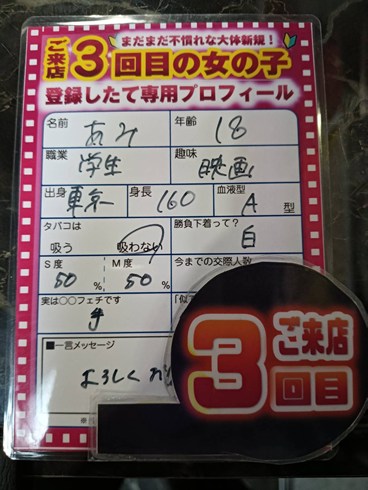 まだまだ不慣れな大体新規！
ご来店3回目の女の子
登録したて専用プロフィール
名前 あみ 年齢 18
職業 学生 趣味 映画
出身 東京 身長 160 血液型 A 型
タバコは 勝負下着って？
吸う 吸わない 白
S度 M度 今までの交際人数
50 % 50 %
実は○○フェチです 「似
手
■一言メッセージ
よろしく
ご来店
3回目